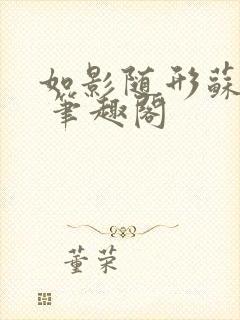 如影随形蘇
笔趣阁
董荣